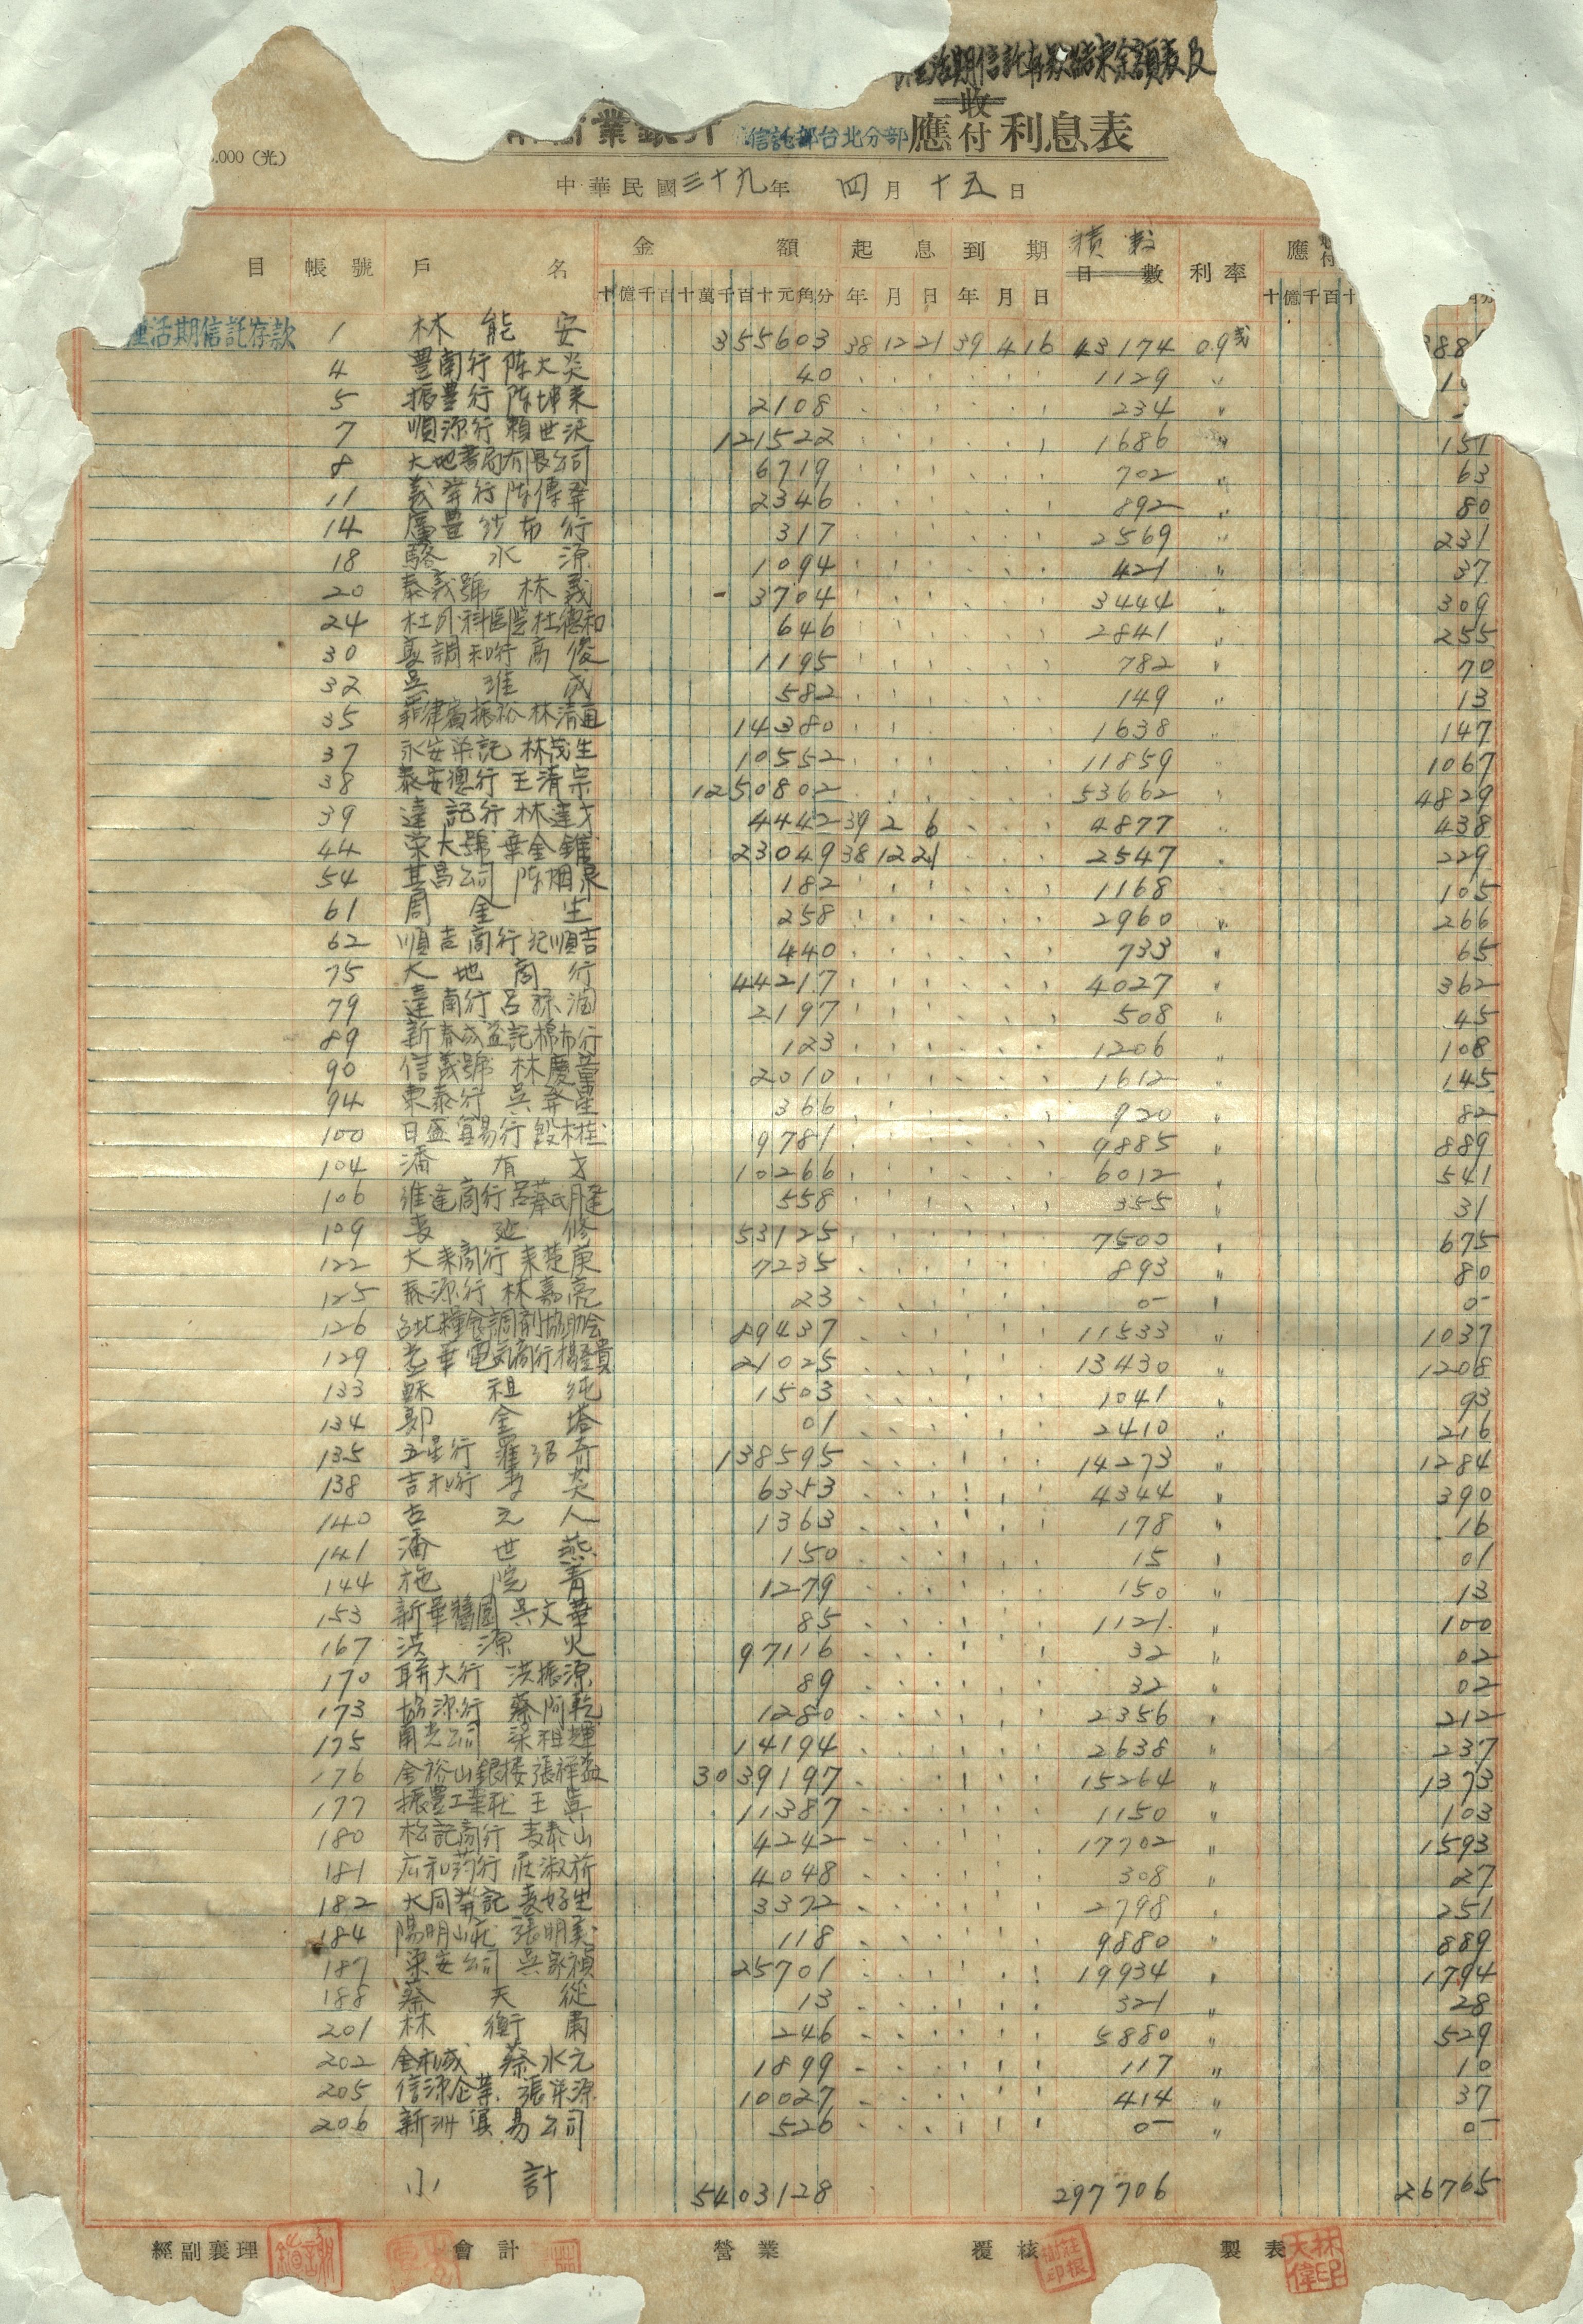 活期信託存款結束余額表及
業銀行 信託部台北分部 應收付利息表
.000 (光)
中華民國三十九年 四月十五日
目 帳號 戶名 金額 起息 到期 積數 日數 利率 應
十億千百十萬千百十元角分 年月日年月日 十億千百十
種活期信託存款 1 林能安 355603 38 12 21 39 4 16 43174 0.9 388
4 豊南行 陈大炎 40 1129 〃
5 振豊行 陈坤来 2108 234 〃
7 順源行 賴世 121522 1686 〃 151
8 大地書局有限公司 6719 702 〃 63
11 義 行 陈 2346 892 〃 80
14 豊紗布行 317 2569 〃 231
18 駱水源 1094 421 〃 37
20 泰義號 林義 3704 3444 〃 309
24 杜外科医院杜德和 646 2841 〃 255
30 調和行 高俊 1195 782 〃 70
32 吳維成 582 149 〃 13
35 菲律賓振裕 林清 14380 1638 〃 147
37 永安 記 林茂生 10552 11859 〃 1067
38 泰安 行 王清宗 1250802 53662 〃 4829
39 達記行 林達才 4442 39 2 6 4877 438
44 榮大號 葉金 23049 38 12 21 2547 〃 229
54 其昌公司 陈 泉 182 1168 105
61 周金生 258 2960 〃 266
62 順吉商行 紀順吉 440 733 〃 65
75 大地商行 44217 4027 〃 362
79 達南行 呂 2197 508 〃 45
89 新春成益記棉布行 123 1206 〃 108
90 信義號 林慶 2010 1612 〃 145
94 東泰行 吳 星 366 920 〃 82
100 日盛貿易行 9781 9885 〃 889
104 潘有才 10266 6012 〃 541
106 維達商行 呂蔡氏月 558 355 〃 31
109 延修 53125 7500 〃 675
122 大来商行 葉 7235 893 〃 80
125 泰源行 林嘉亮 23 0- 〃 0-
126 台北糧食調劑協助会 89437 11533 〃 1037
129 光華電気商行 楊 21025 13430 〃 1208
133 蘇祖純 1503 1041 〃 93
134 郭金塔 01 2410 〃 216
135 五星行 羅 奇 138595 14273 〃 1284
138 吉和行 李炎 6353 4344 〃 390
140 古元人 1363 178 〃 16
141 潘世燕 150 15 〃 01
144 施院菁 1279 150 〃 13
153 新華醬園 吳文華 85 1121 〃 100
167 洪源火 97116 32 〃 02
170 聯大行 洪振源 89 32 〃 02
173 協源行 蔡阿乾 1280 2356 〃 212
175 南光公司 梁祖輝 14194 2638 〃 237
176 金裕山銀楼 張祥益 3039197 15264 〃 1373
177 振豊工業社 王 11387 1150 〃 103
180 松記商行 泰山 4242 17702 〃 1593
181 広和药行 莊淑 4048 308 〃 27
182 大同 記 好生 3372 2798 〃 251
184 陽明山莊 張明義 118 9880 〃 889
187 公司 吳家禎 25701 19934 〃 1794
188 蔡天從 13 321 〃 28
201 林衡肅 246 5880 〃 529
202 金 成 蔡水元 1899 117 〃 10
205 信源企業 張 源 10027 414 〃 37
206 新洲貿易公司 526 0- 〃 0-
小計 5403128 297706 26765
經副襄理 會計 營業 覆核 製表 林大偉印